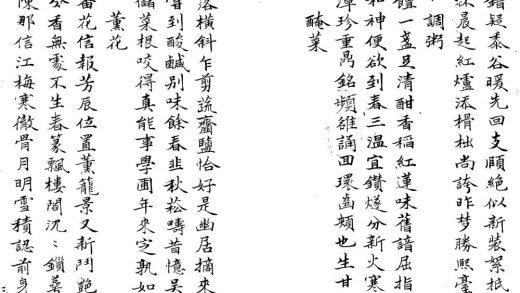 疑黍谷暖先回支頤絶似新裝絮抵
深晨起紅爐添榾柮尚誇昨夢勝熙臺
調粥
饘一盞且清酣香稻紅蓮味舊諳屈指
和神便欲到春三溫宜鑽燧分新火寒
潭珍重鬲銘頻雒誦回環齒頰也生甘
醃菜
落橫斜乍剪蔬虀鹽恰好是幽居摘來
嘗到酸鹹別味餘春韭秋菘疇昔憶吳
儲菜根咬得真能事學圃年來定孰如
薰花
番花信報芳辰位置薰籠景又新鬥艷
分香無處不生春篆飄樓閣沉〻鎖
陳那信江梅寒徹骨月明雪積認前身